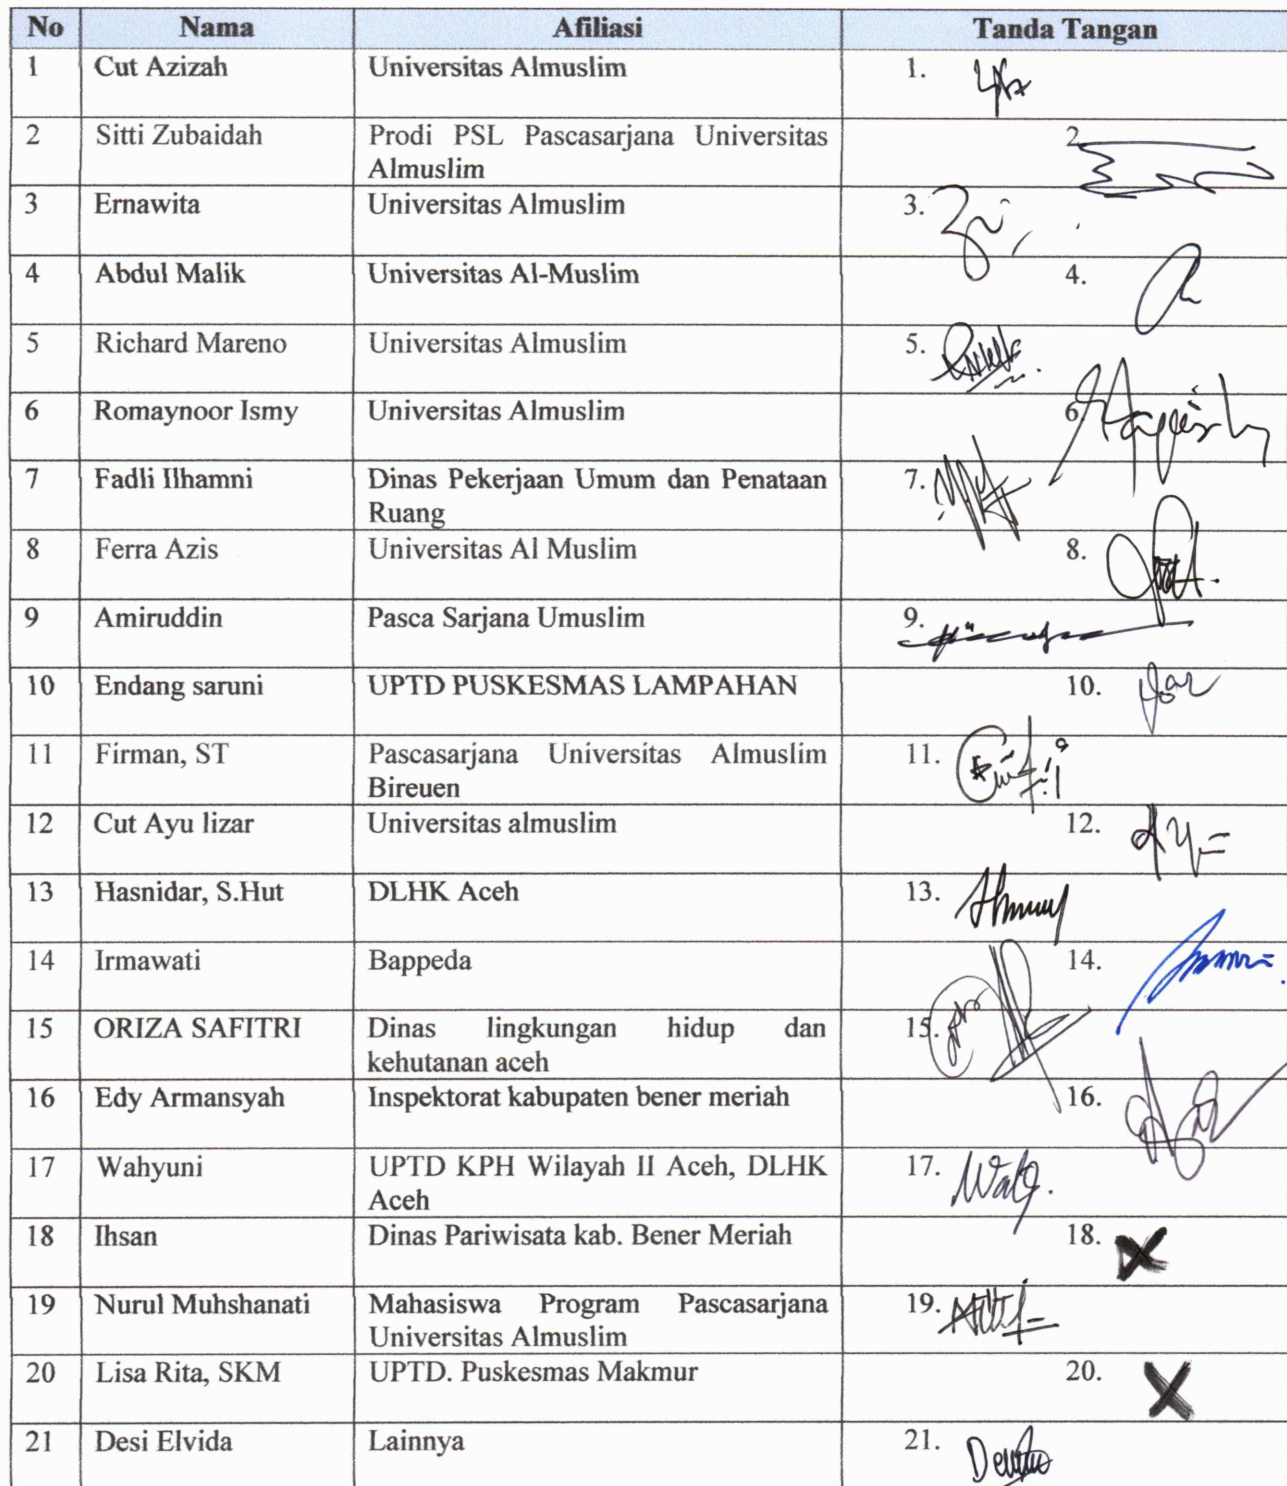 No Nama Afiliasi Tanda Tangan
1 Cut Azizah Universitas Almuslim 1.
2 Sitti Zubaidah Prodi PSL Pascasarjana Universitas 2
Almuslim
3 Ernawita Universitas Almuslim 3.
4 Abdul Malik Universitas Al-Muslim 4.
5 Richard Mareno Universitas Almuslim 5.
6 Romaynoor Ismy Universitas Almuslim 6.
7 Fadli Ilhamni Dinas Pekerjaan Umum dan Penataan 7.
Ruang
8 Ferra Azis Universitas Al Muslim 8.
9 Amiruddin Pasca Sarjana Umuslim 9.
10 Endang saruni UPTD PUSKESMAS LAMPAHAN 10.
11 Firman, ST Pascasarjana Universitas Almuslim 11.
Bireuen
12 Cut Ayu lizar Universitas almuslim 12.
13 Hasnidar, S.Hut DLHK Aceh 13.
14 Irmawati Bappeda 14.
15 ORIZA SAFITRI Dinas lingkungan hidup dan 15.
kehutanan aceh
16 Edy Armansyah Inspektorat kabupaten bener meriah 16.
17 Wahyuni UPTD KPH Wilayah II Aceh, DLHK 17.
Aceh
18 Ihsan Dinas Pariwisata kab. Bener Meriah 18.
19 Nurul Muhshanati Mahasiswa Program Pascasarjana 19.
Universitas Almuslim
20 Lisa Rita, SKM UPTD. Puskesmas Makmur 20.
21 Desi Elvida Lainnya 21.